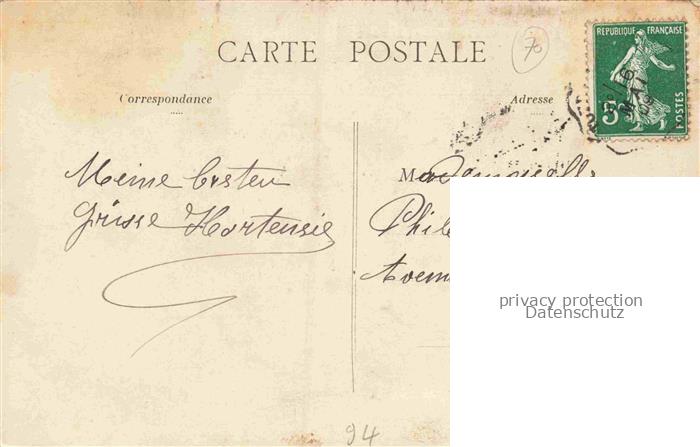 CARTE POSTALE
70
REPUBLIQUE FRANÇAISE
5
POSTES
16
MAI
Correspondance
Adresse
Meine besten
Grüsse Hortensie
Mademoiselle
Phil
Aven
privacy protection
Datenschutz
94